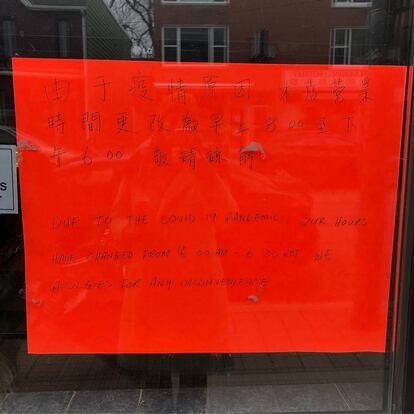 由于疫情原因 本店营業
時間更改為早上8:00至下
午6:00 敬請諒解
DUE TO THE COVID 19 PANDEMIC, OUR HOURS
HAVE CHANGED FROM 8:00 AM - 6:00 PM WE
APOLOGIES FOR ANY INCONVENIENCE